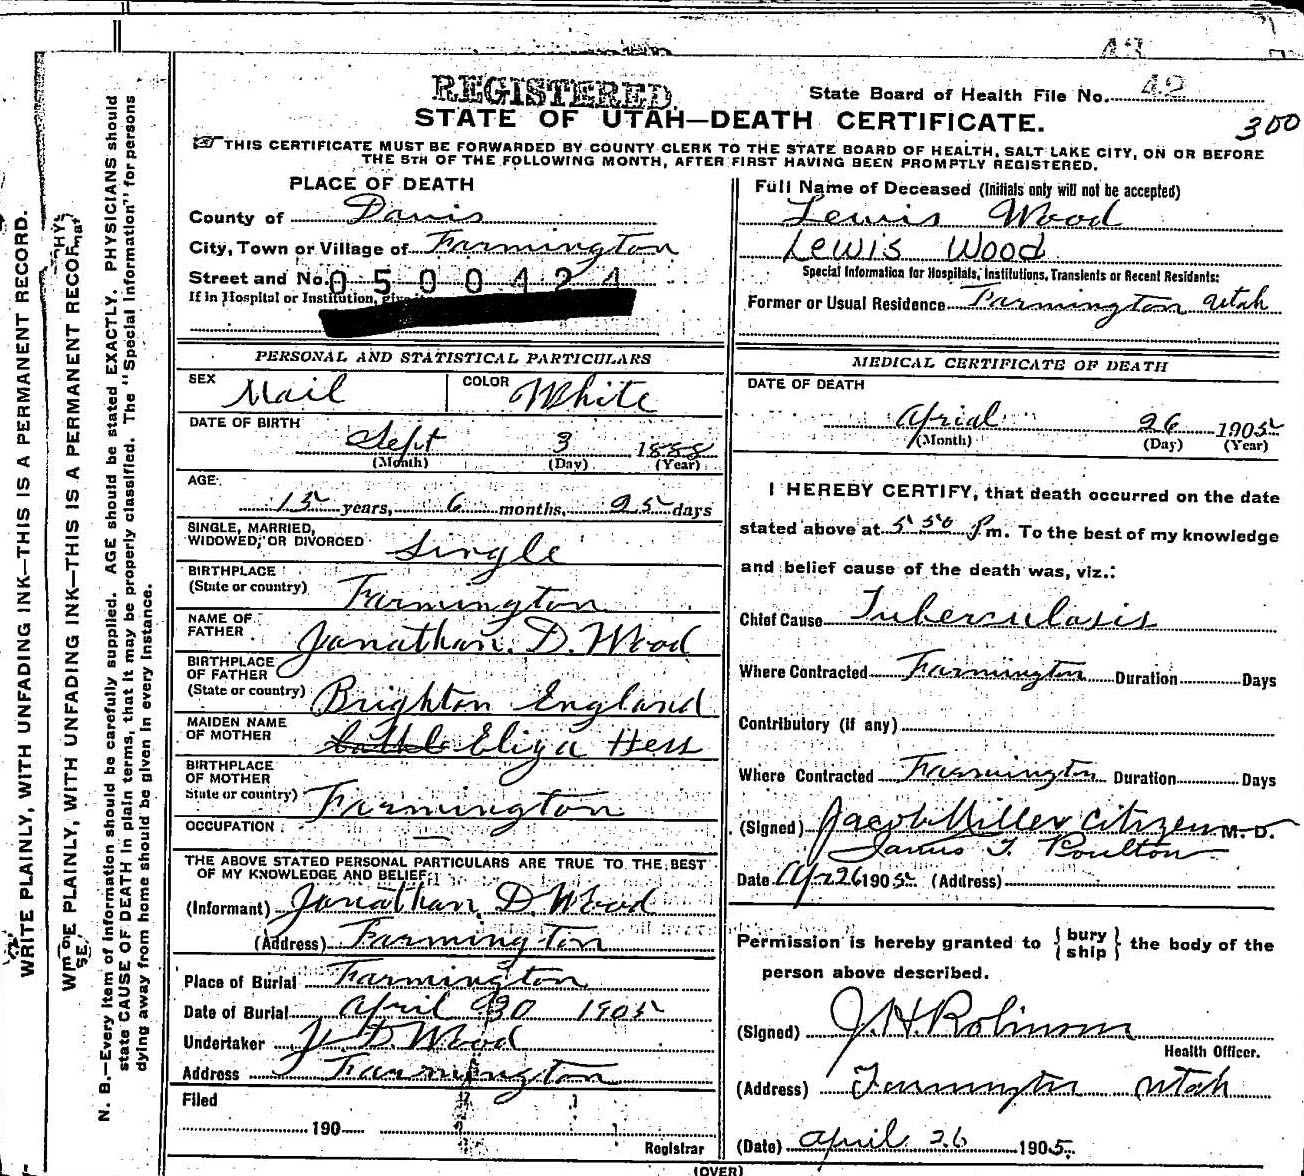 43
REGISTERED.
State Board of Health File No. 42
STATE OF UTAH—DEATH CERTIFICATE.
300
THIS CERTIFICATE MUST BE FORWARDED BY COUNTY CLERK TO THE STATE BOARD OF HEALTH, SALT LAKE CITY, ON OR BEFORE
THE 5TH OF THE FOLLOWING MONTH, AFTER FIRST HAVING BEEN PROMPTLY REGISTERED.
WRITE PLAINLY, WITH UNFADING INK—THIS IS A PERMANENT RECORD.
E PLAINLY, WITH UNFADING INK—THIS IS A PERMANENT RECOR
N. B.—Every item of information should be carefully supplied. AGE should be stated EXACTLY. PHYSICIANS should
state CAUSE OF DEATH in plain terms, that it may be properly classified. The "Special Information" for persons
dying away from home should be given in every instance.
PLACE OF DEATH
County of Davis
City, Town or Village of Farmington
Street and No. 0500424
If in Hospital or Institution,
PERSONAL AND STATISTICAL PARTICULARS
SEX Mail COLOR White
DATE OF BIRTH
Sept 3 1888
(Month) (Day) (Year)
AGE
15 years, 6 months, 25 days
SINGLE, MARRIED,
WIDOWED, OR DIVORCED Single
BIRTHPLACE
(State or country) Farmington
NAME OF
FATHER Jonathan. D. Wood
BIRTHPLACE
OF FATHER
(State or country) Brighton England
MAIDEN NAME
OF MOTHER Eliza Hess
BIRTHPLACE
OF MOTHER
State or country) Farmington
OCCUPATION —
THE ABOVE STATED PERSONAL PARTICULARS ARE TRUE TO THE BEST
OF MY KNOWLEDGE AND BELIEF.
(Informant) Jonathan D. Wood
(Address) Farmington
Place of Burial Farmington
Date of Burial April 30 1905
Undertaker J D. Wood
Address Farmington
Filed
190
Registrar
Full Name of Deceased (Initials only will not be accepted)
Lewis Wood
LEWIS WOOD
Special Information for Hospitals, Institutions, Transients or Recent Residents:
Former or Usual Residence Farmington Utah
MEDICAL CERTIFICATE OF DEATH
DATE OF DEATH
Aprial 26 1905
(Month) (Day) (Year)
I HEREBY CERTIFY, that death occurred on the date
stated above at 5 50 P m. To the best of my knowledge
and belief cause of the death was, viz.:
Chief Cause Tuberculasis
Where Contracted Farmington Duration Days
Contributory (if any)
Where Contracted Farmington Duration Days
(Signed) Jacob Miller Citizen M. D.
James T. Poulton
Date Apr 26 1905 (Address)
Permission is hereby granted to { bury
ship } the body of the
person above described.
(Signed) J. H. Robinson
Health Officer.
(Address) Farmington Utah
(Date) April 26 1905.
(OVER)